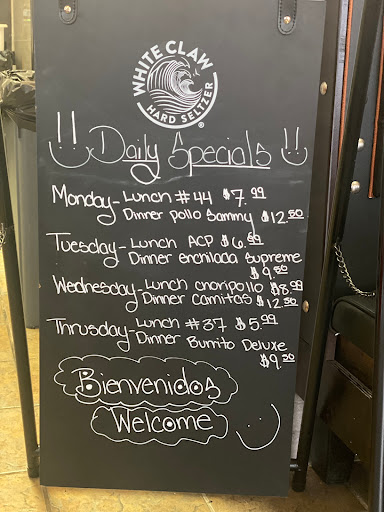 WHITE CLAW
HARD SELTZER
Daily Specials
Monday- Lunch #44 $7.99
Dinner pollo Sammy $12.50
Tuesday- Lunch ACP $6.99
Dinner enchilada supreme
$9.50
Wednesday- Lunch choripollo $8.99
Dinner Carnitas $12.50
Thrusday- Lunch #37 $5.99
Dinner Burrito Deluxe
$9.50
Bienvenidos
Welcome